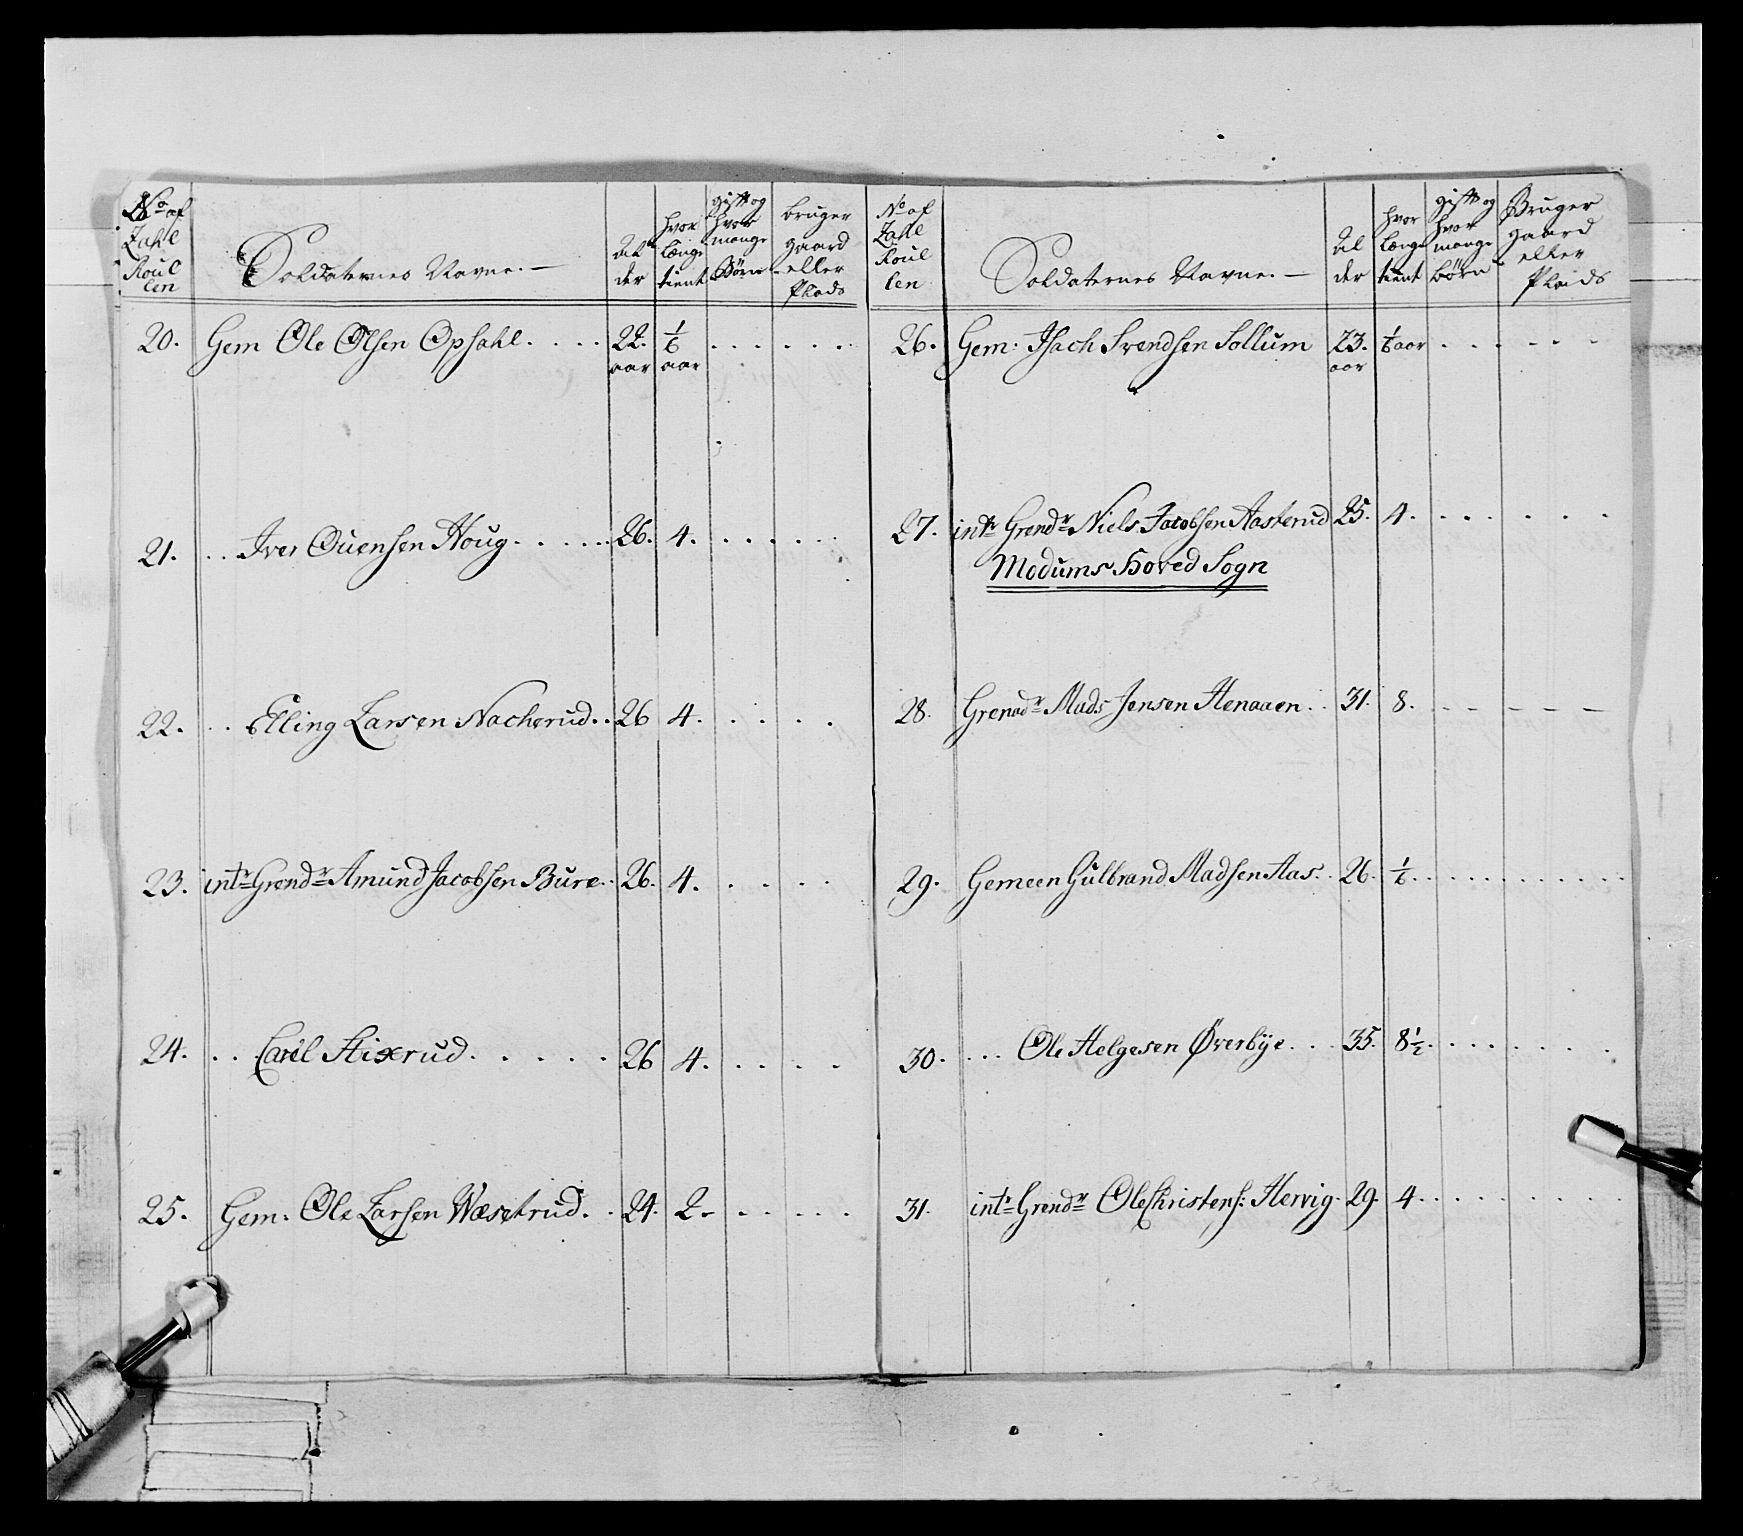 No af Zahl Roul len | Soldaternes Navne. — | Al der | hvor længe tient | gift og hvor mange Børn | bruger gaard eller Plads
20. Gem Ole Olsen Opsahl. . . . . 22. aar 1/6 aar . . . . . .
21. . . Iver Ouensen Houg. . . . . . 26. 4. . . . . . .
22. . . Elling Larsen Nacherud. . 26 4. . . . . .
23. intr Grendr Amund Jacobsen Bure. . 26. 4. . . . .
24. . . Carel Hixrud. . . . . . 26 4. . . . .
25. Gem. Ole Larsen Wæsetrud. . 24. 2. . . . . .
No af Zahl Roul len | Soldaternes Navne. — | Al der | hvor længe tient | gift og hvor mange børn | Bruger gaard eller Plads
26. Gem: Isach Svendsen Sollum 23. aar 1/6 aar . . . . . .
27. intr Grendr Niels Jacobsen Aasterud 25. 4. . . . . . .
Modums Hoved Sogn
28. Grenadr Mads Jensen Henaaen. . 31. 8. . . – – – –
29. Gemeen Gulbrand Madsen Aas. . 26. 1/6. . . . . . . . . .
30. . . . Ole Helgesen Øverbÿe. . . 35. 8 1/2. . . . . . .
31. intr Grendr Ole Christens: Hervig. 29. 4. . . . . . . . .